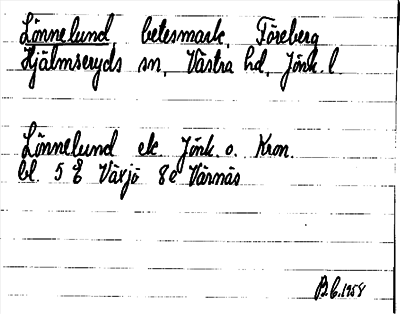 Lönnelund, betesmark, Föreberg
Hjälmseryds sn, Västra hd, Jönk. l.
Lönnelund ek Jönk. o. Kron.
bl. 5 Växjö 8e Värnäs
B.C. 1958